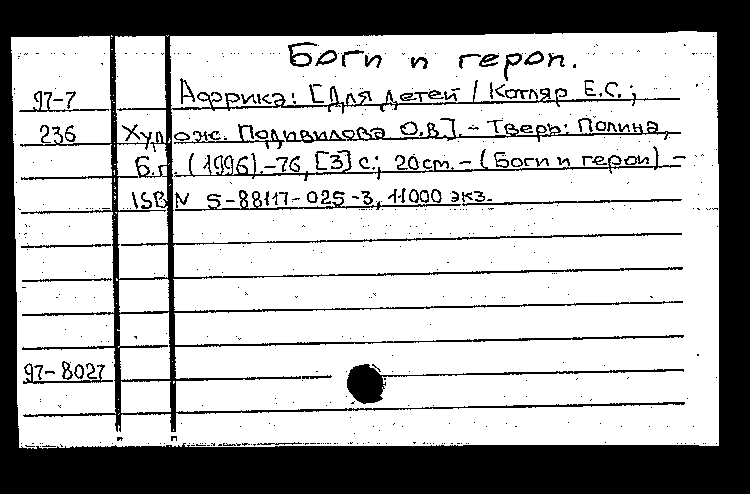 Боги и герои.
97-7 Африка: [Для детей / Котляр Е.С.;
236 Худож. Подивилова О.В.]. - Тверь: Полина,
Б.г. (1996). - 76, [3] с.; 20 cm. - (Боги и герои) -
ISBN 5-88117-025-3, 11000 экз.
97-8027